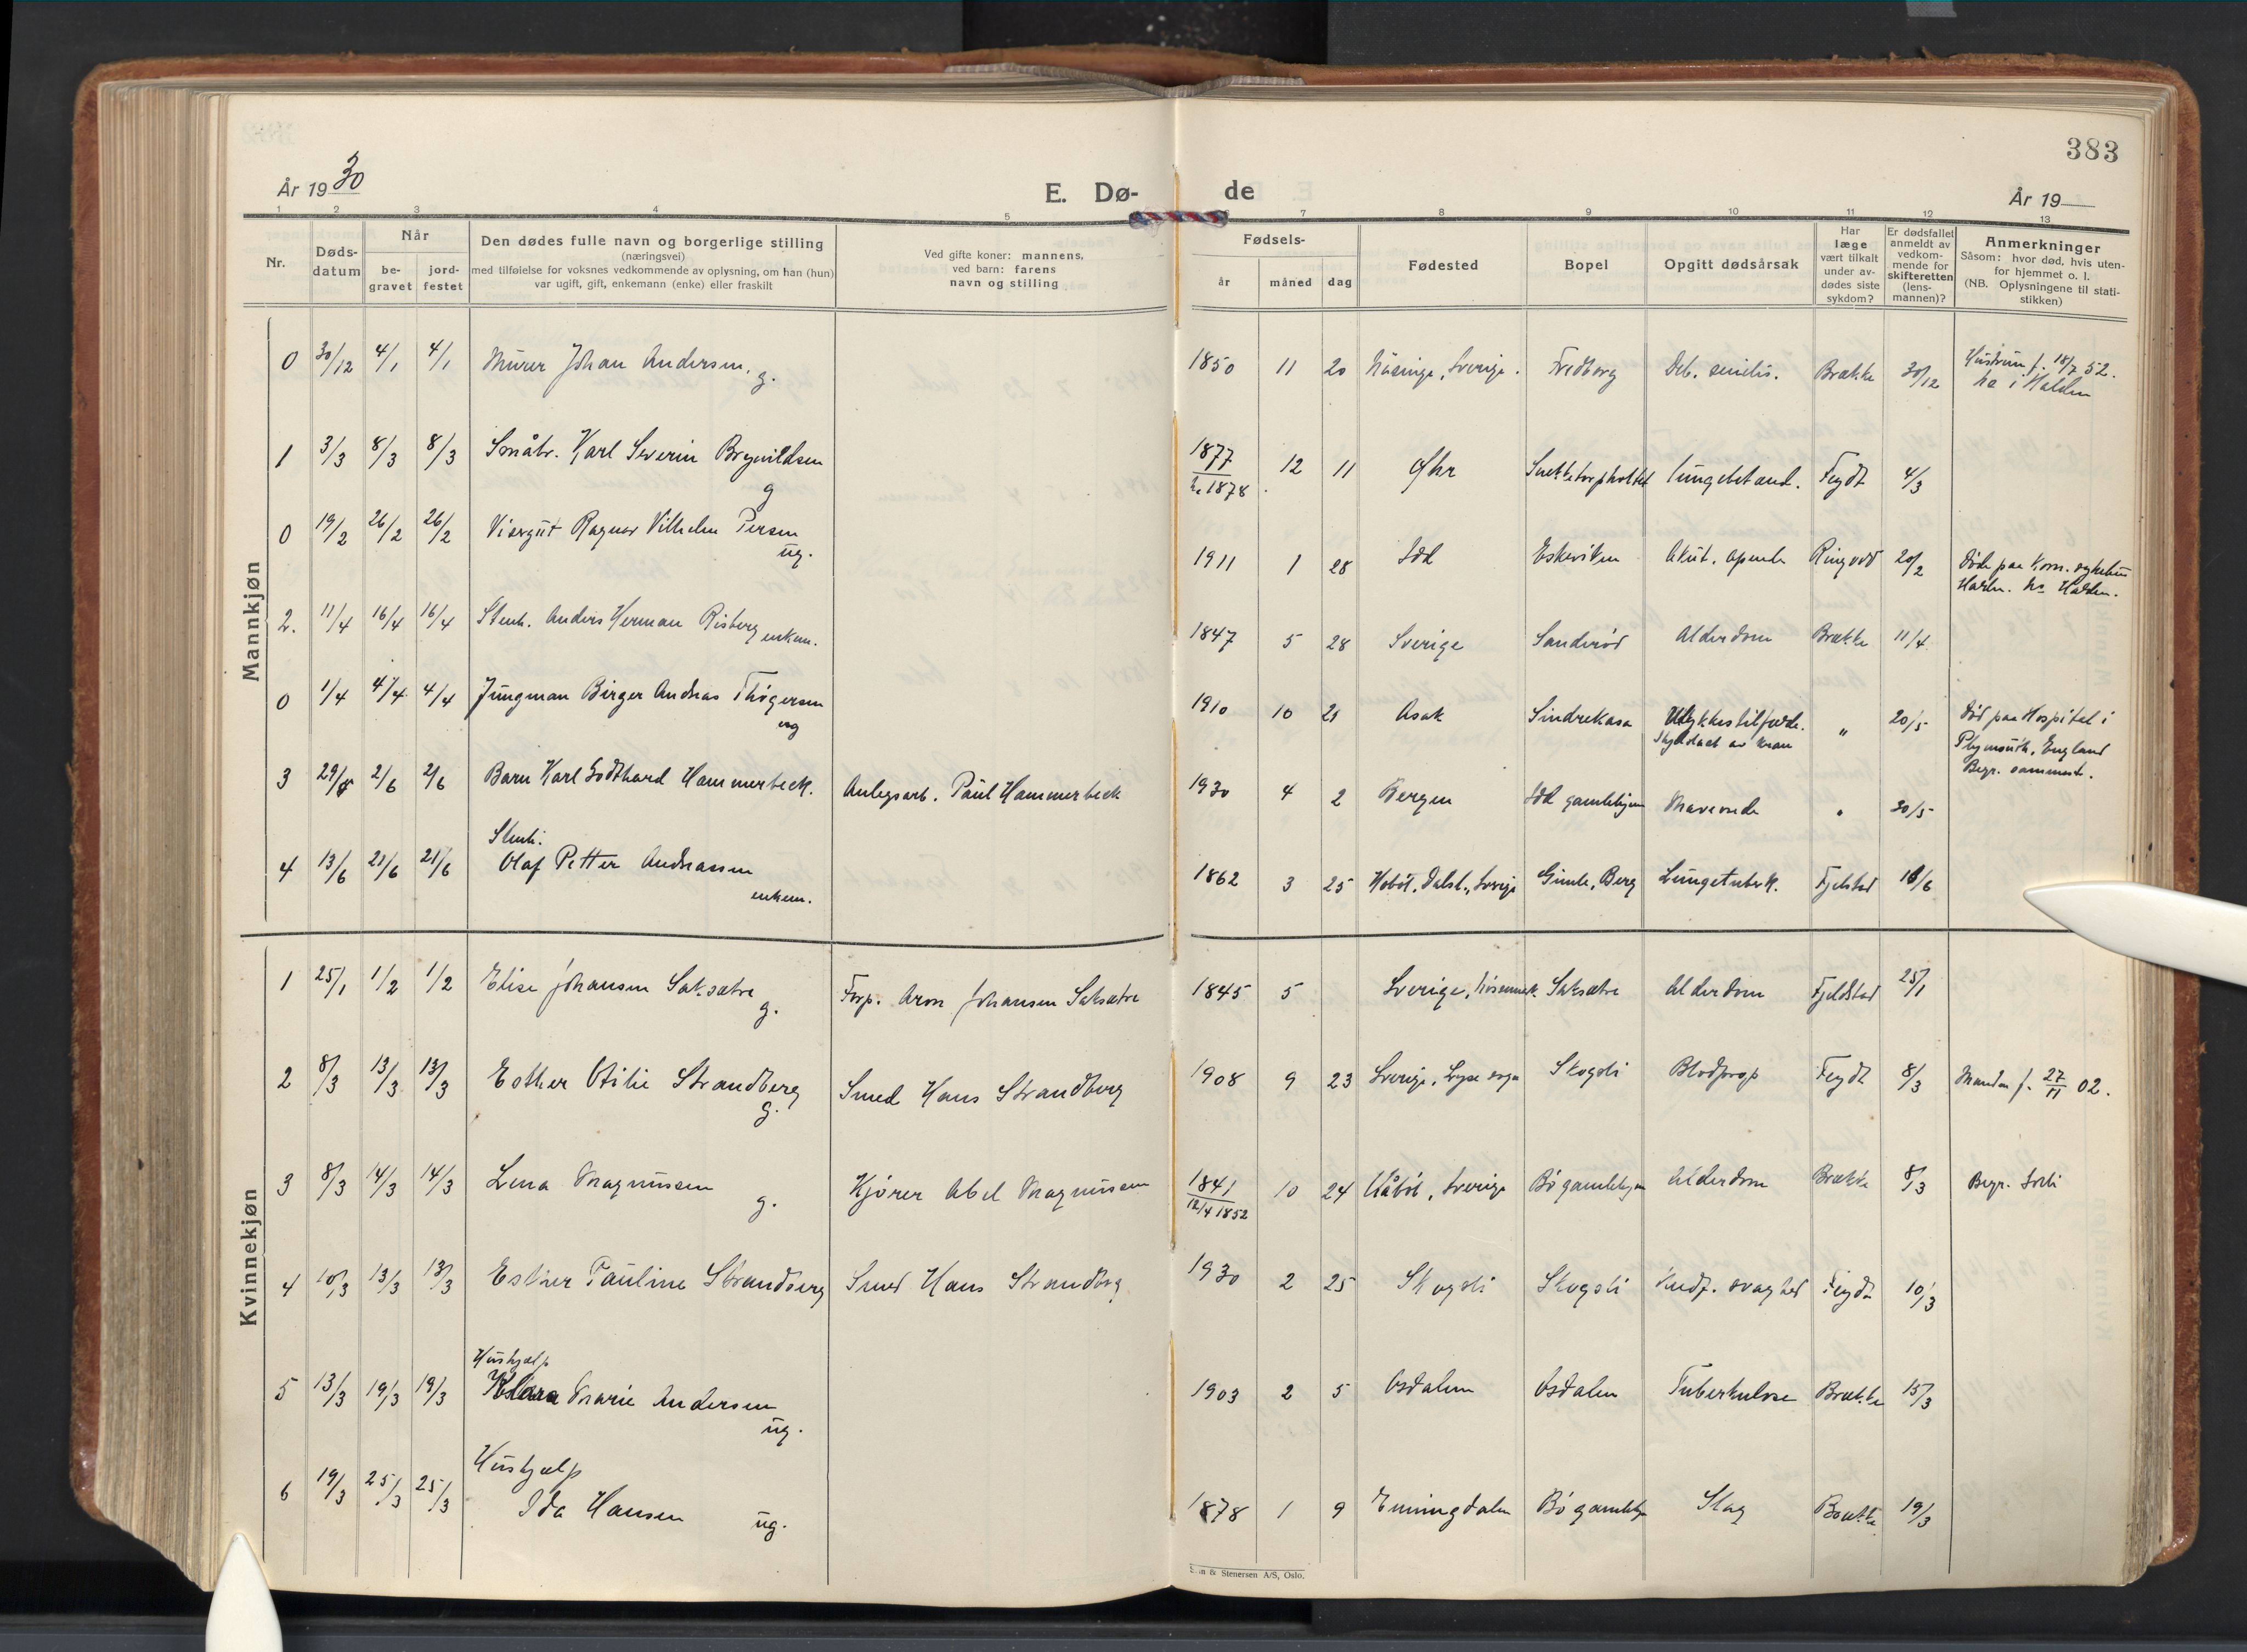 383
År 1930
E. Dø-
de
År 19
1 2 3 4 5 6 7 8 9 10 11 12 13
Nr.
Døds-
datum
Når
be-
gravet
jord-
festet
Den dødes fulle navn og borgerlige stilling
(næringsvei)
med tilføielse for voksnes vedkommende av oplysning, om han (hun)
var ugift, gift, enkemann (enke) eller fraskilt
Ved gifte koner: mannens,
ved barn: farens
navn og stilling
Fødsels-
år måned dag
Fødested
Bopel
Opgitt dødsårsak
Har
læge
vært tilkalt
under av-
dødes siste
sykdom?
Er dødsfallet
anmeldt av
vedkom-
mende for
skifteretten
(lens-
mannen)?
Anmerkninger
Såsom: hvor død, hvis uten-
for hjemmet o. l.
(NB. Oplysningene til stati-
stikken)
Mannkjøn
0 30/12 4/1 4/1 Murer Johan Andersen. g. 1850 11 20 Näsinge, Sverige. Fredborg Deb. senilis. Brække 30/12 Hustrun f. 18/7 52.
ha i Halden
1 3/3 8/3 8/3 Småbr. Karl Severin Brynildsen
g
1877 12 11 Øhr Snekketorpholtet Lungebetænd. Feydt 4/3
1878
0 19/2 26/2 26/2 Visergut Ragnar Vilhelm Persen
ug.
1911 1 28 Idd Eskeviken Akut. apende Ringvold 20/2 Døde paa Kom. sykehus
Halden.
2. 11/4 16/4 16/4 Stenh. Anders Herman Risberg enkem. 1847 5 28 Sverige Sanderød Alderdom Brække 11/4
0 1/4 4/4 4/4 Jungman Birger Andreas Thøgersen
ug
1910 10 21 Asak Sindrekasa Ulykkestilfælde. " 20/5 Død paa Hospital i
av kran
Plymouth, England
Begr. sammest.
3 29/4 2/6 2/6 Barn Karl Godthard Hammerbeck. Anlegsarb. Paul Hammerbeck 1930 4 2 Bergen Idd gamlehjem Maveonde " 30/5
4 13/6 21/6 21/6 Stenh.
Olaf Petter Andreassen
enkem.
1862 3 25 Håböl, Dalsl., Sverige Gimle, Berg Lungetuberk. Fjelstad 16/6
Kvinnekjøn
1 25/1 1/2 1/2 Elise Johansen Saksætre
g.
Forp. Aron Johansen Saksætre 1845 5 Sverige, Saksætre Alderdom Fjeldstad 25/1
2 8/3 13/3 13/3 Esther Otilie Strandberg
g.
Smed Hans Strandberg 1908 9 23 Sverige, Lyse sogn Skogsli Blodprop Feydt 8/3 Manden f. 27/11 02.
3 8/3 14/3 14/3 Lena Magnussen
g.
Kjører Abel Magnussen 1841 10 24 Håböl, Sverige Bø gamlehjem Alderdom Brække 8/3 Begr.
12/4 1852
4 10/3 13/3 13/3 Esther Pauline Strandberg Smed Hans Strandberg 1930 2 25 Skogsli Skogsli Medf. svaghed Feydt 10/3
5 13/3 19/3 19/3 Hushjælp
Klara Marie Andersen
ug.
1903 2 5 Asdalen Asdalen Tuberkulose Brække 15/3
6 19/3 25/3 25/3 Hushjælp
Ida Hansen ug.
1878 1 9 Enningdalen Bø gamlehjem Slag Brække 19/3
& Stenersen A/S, Oslo.